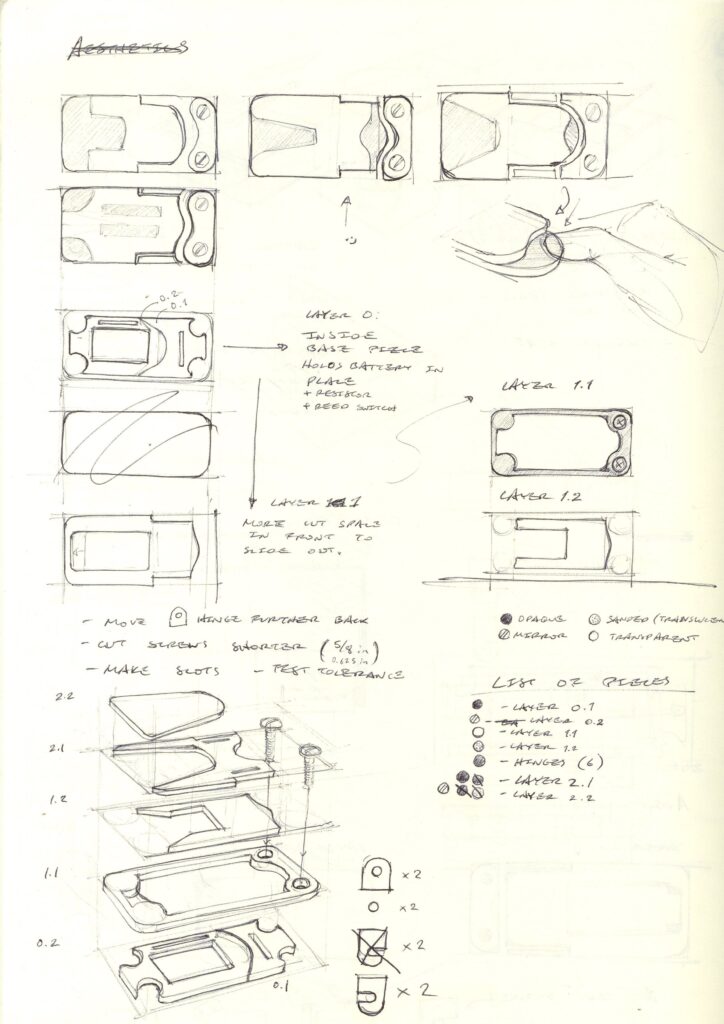 AESTHETICS
0.2
0.1
LAYER 0:
INSIDE
BASE PIECE
HOLDS BATTERY IN
PLACE
+ RESISTOR
+ REED SWITCH
LAYER 1
MORE CUT SPACE
IN FRONT TO
SLIDE OUT.
LAYER 1.1
LAYER 1.2
- MOVE HINGE FURTHER BACK
- CUT SCREWS SHORTER (5/8 in 0.625 in)
- MAKE SLOTS - TEST TOLERANCE
OPAQUE SANDED (TRANSLUCEN
MIRROR TRANSPARENT
LIST OF PIECES
- LAYER 0.1
- LAYER 0.2
- LAYER 1.1
- LAYER 1.2
- HINGES (6)
- LAYER 2.1
- LAYER 2.2
2.2
2.1
1.2
1.1
0.2
0.1
x 2
x 2
x 2
x 2